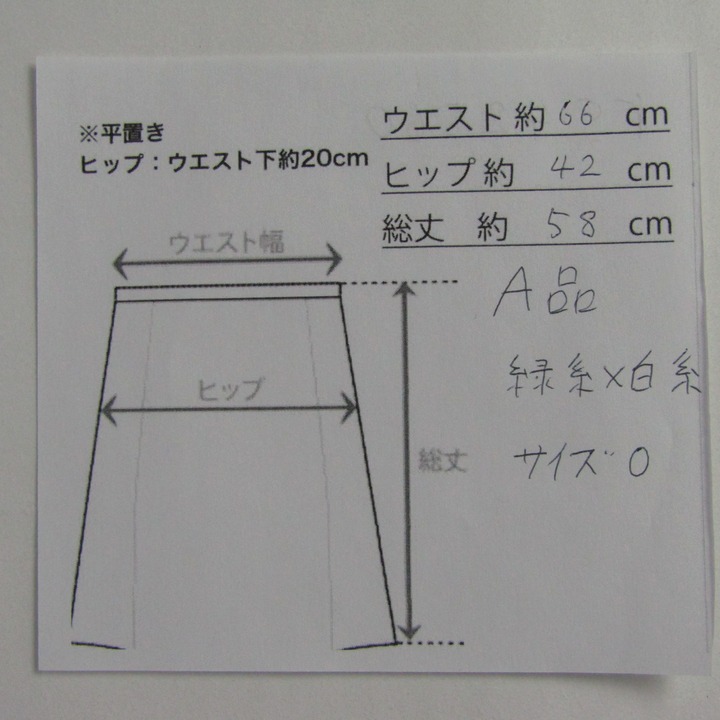 ※平置き
ヒップ：ウエスト下約20cm
ウエスト 約 66 cm
ヒップ 約 42 cm
総丈 約 58 cm
A品
緑糸×白糸
サイズ 0
ウエスト幅
ヒップ
総丈